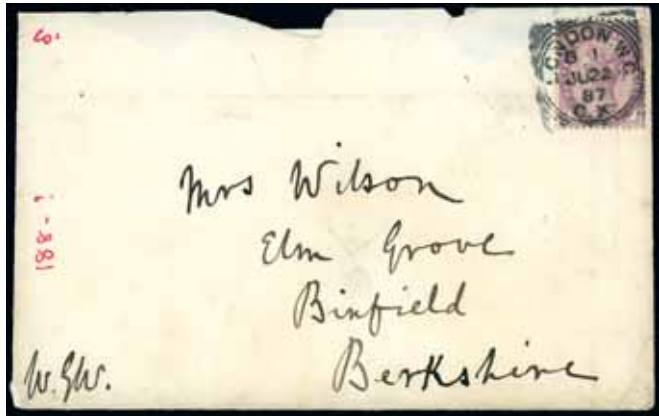 LONDON.W.C.
8 1
JU22
87
C.X.
Mrs Wilson
Elm Grove
Binfield
Berkshire
W.GW.